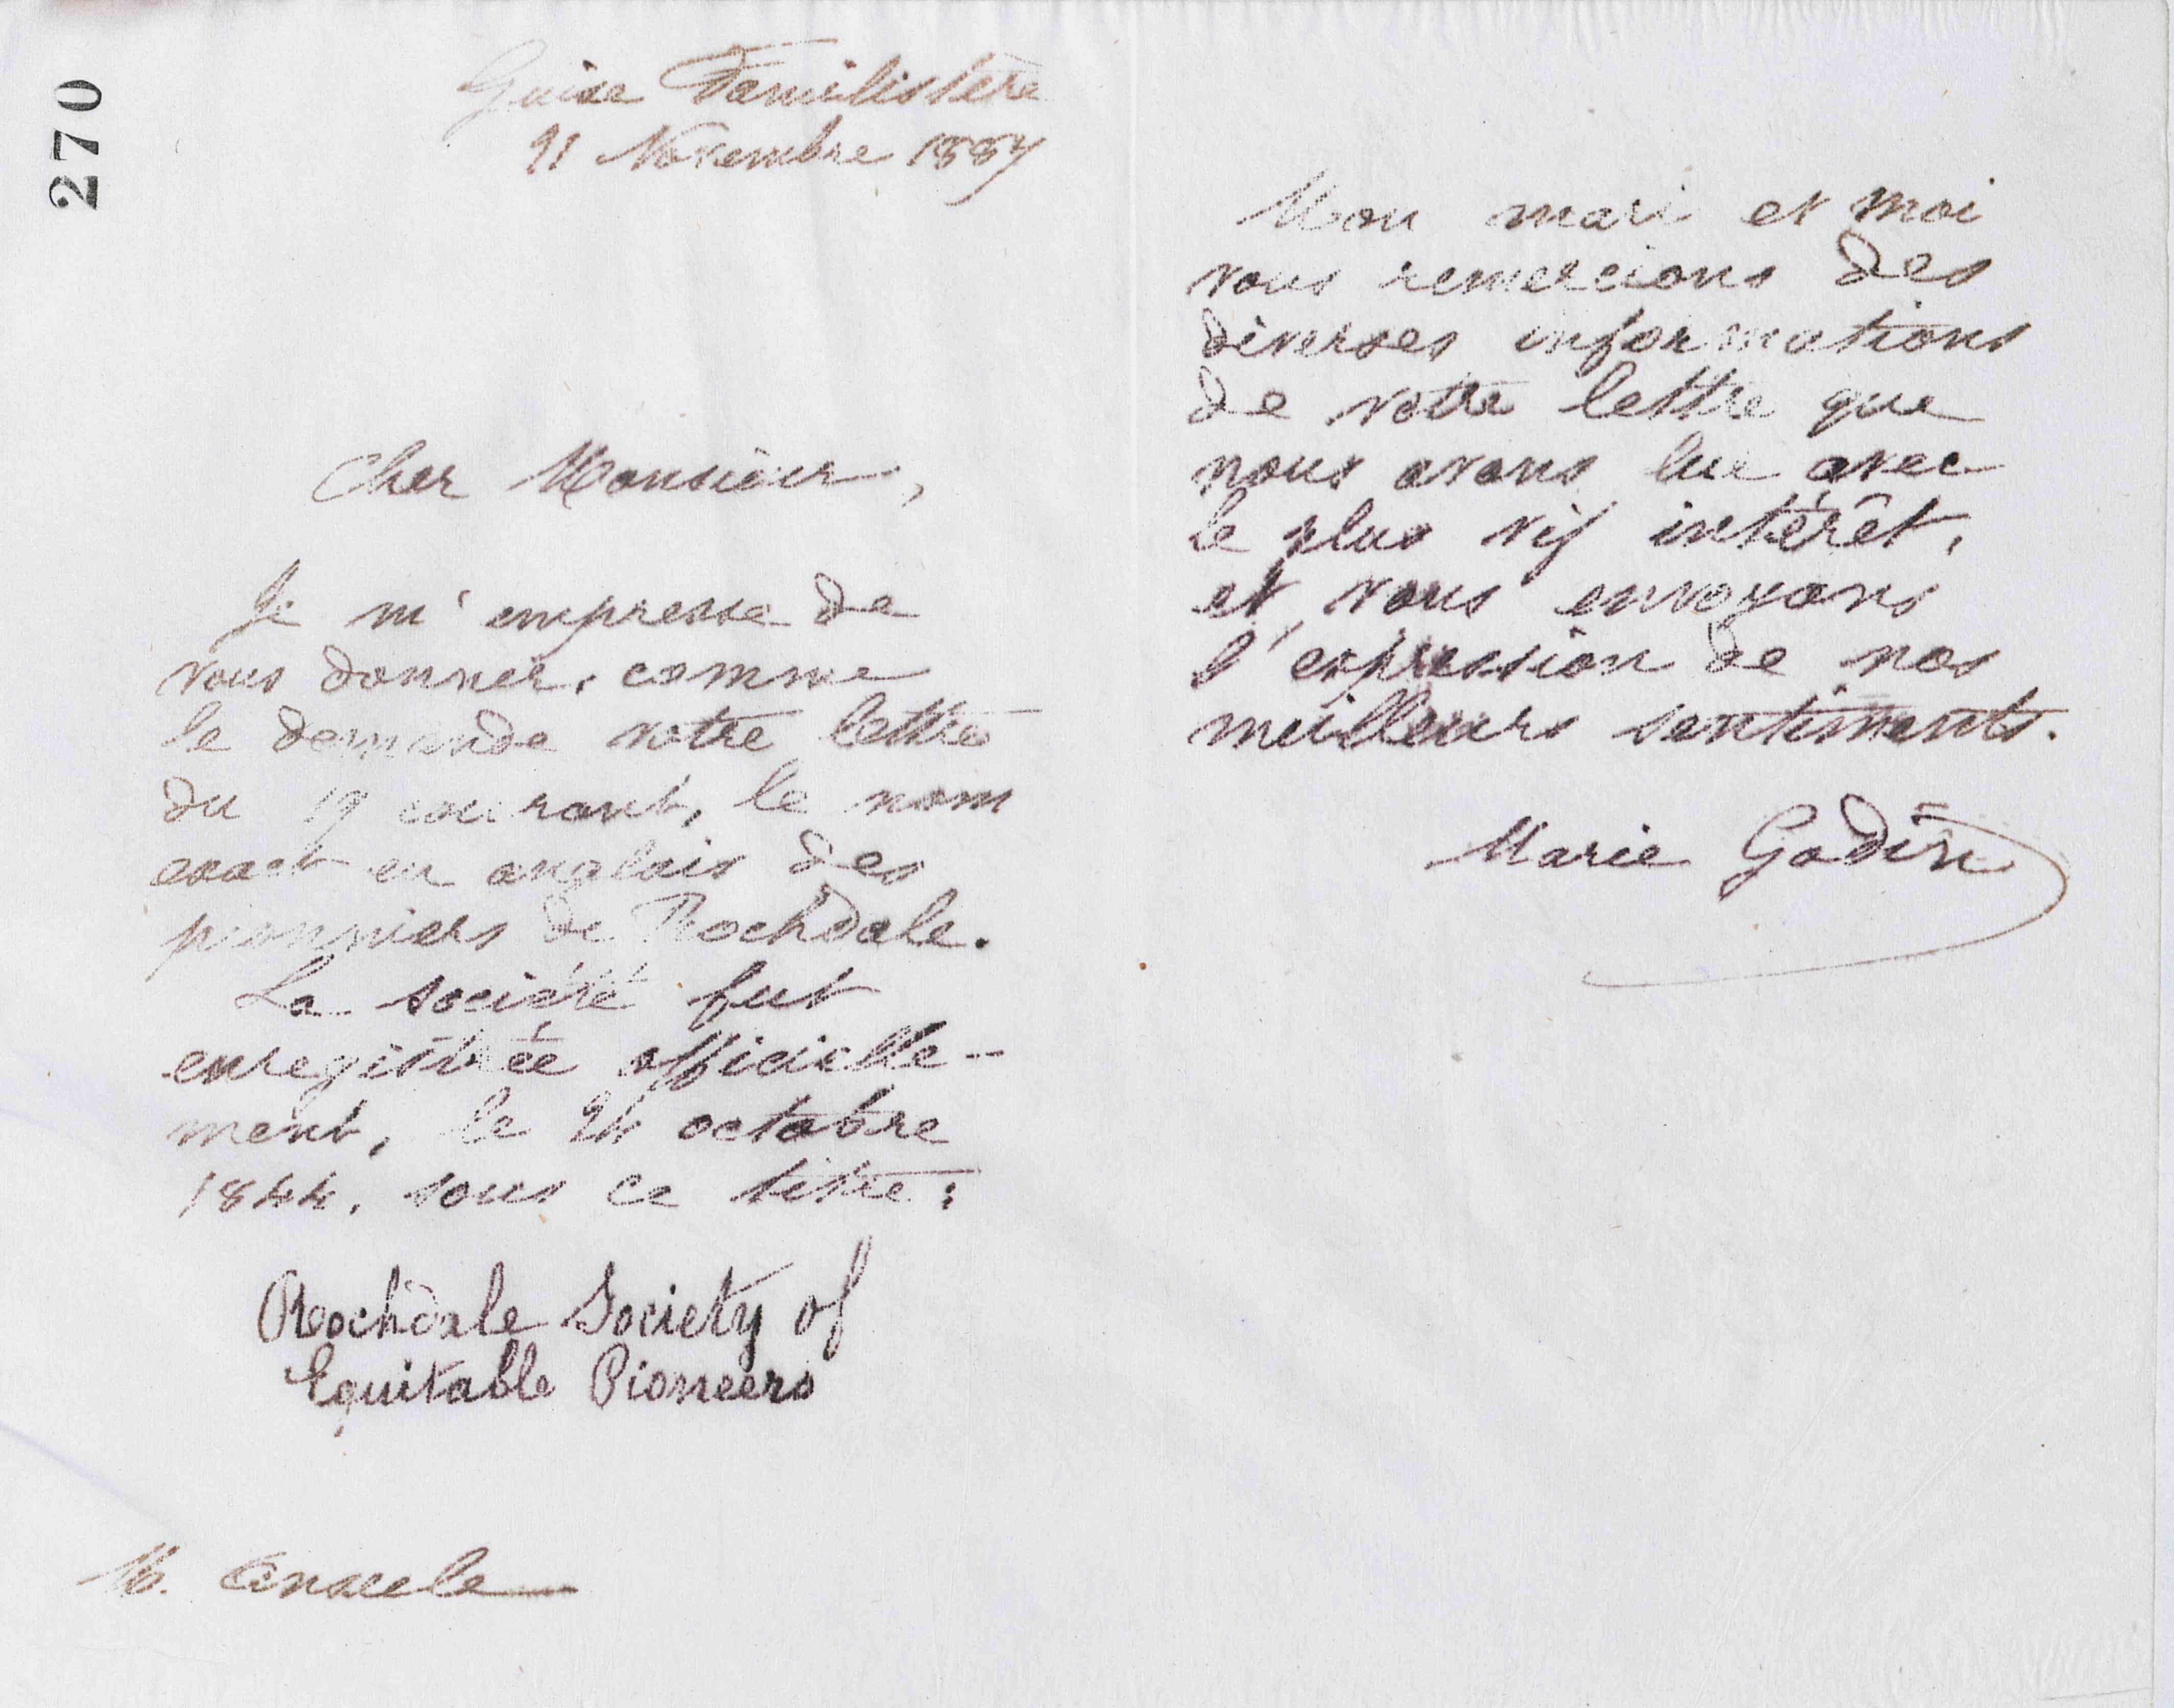 270
Guise Familistère
21 Novembre 1887
Cher Monsieur,
Je m'empresse de
vous donner, comme
le demande votre lettre
du 19 courant, le nom
exact en anglais des
pionniers de Rochdale.
La société fut
enregistrée officielle-
ment, le 24 octobre
1844, sous ce titre :
Rochdale Society of
Equitable Pioneers
M. Anseele
Mon mari et moi
vous remercions des
diverses informations
de votre lettre que
nous avons lue avec
le plus vif intérêt,
et vous envoyons
l'expression de nos
meilleurs sentiments.
Marie Godin